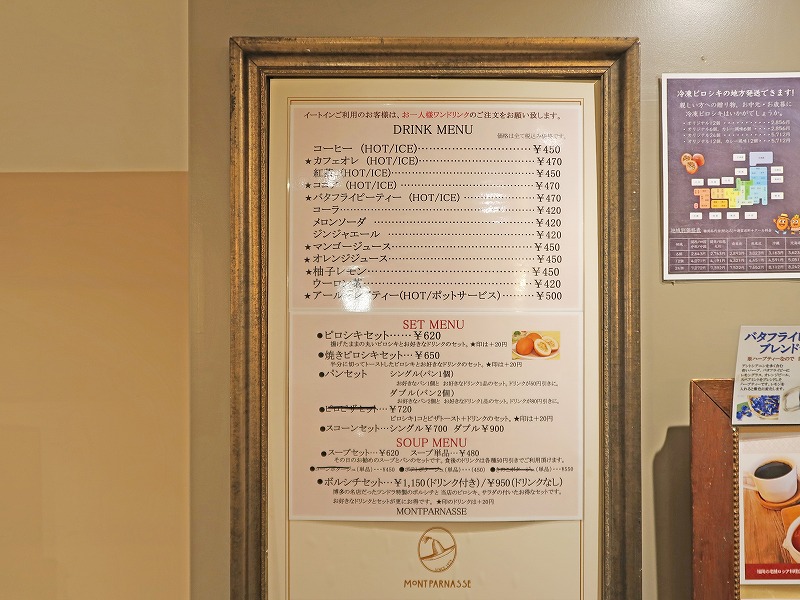 イートインご利用のお客様は、お一人様ワンドリンクのご注文をお願い致します。
DRINK MENU
価格は全て税込み価格です。
コーヒー（HOT/ICE）･････････￥450
★カフェオレ（HOT/ICE）･････････￥470
紅茶（HOT/ICE）･････････￥450
★ココア（HOT/ICE）･････････￥470
★バタフライピーティー（HOT/ICE）･････････￥470
コーラ･････････￥420
メロンソーダ･････････￥420
ジンジャエール･････････￥420
★マンゴージュース･････････￥450
★オレンジジュース･････････￥450
★柚子レモン･････････￥450
ウーロン茶･････････￥420
★アールグレイティー(HOT/ポットサービス)･････････￥500
SET MENU
●ピロシキセット……￥620
揚げたままの丸いピロシキとお好きなドリンクのセット。★印は＋20円
●焼きピロシキセット…￥650
半分に切ってトーストしたピロシキとお好きなドリンクのセット。★印は＋20円
●パンセット シングル(パン1個)
お好きなパン1個と お好きなドリンク1品のセット。ドリンクが50円引きに。
ダブル(パン2個)
お好きなパン2個と お好きなドリンク1品のセット。ドリンクが80円引きに。
●ピロピザセット…￥720
ピロシキ1コとピザトースト＋ドリンクのセット。★印は＋20円
●スコーンセット…シングル￥700 ダブル￥900
SOUP MENU
●スープセット…￥620 スープ単品…￥480
その日のお勧めのスープとパンのセットです。食後のドリンクは各種50円引きでご利用頂けます。
●コーンポタージュ(単品)…￥450 ●ポテトポタージュ(単品)…(450) ●きのこポタージュ(単品)…￥550
●ボルシチセット…￥1,150(ドリンク付き)/￥950(ドリンクなし)
博多の名店だったツンドラ特製のボルシチと 当店のピロシキ、サラダの付いたお得なセットです。
お好きなドリンクとセットが更にお得です。★印のドリンクは＋20円
MONTPARNASSE
MONTPARNASSE
冷凍ピロシキの地方発送できます!
親しい方への贈り物、お中元・お歳暮に
冷凍ピロシキはいかがでしょうか。
バタフライピー
ブレンド